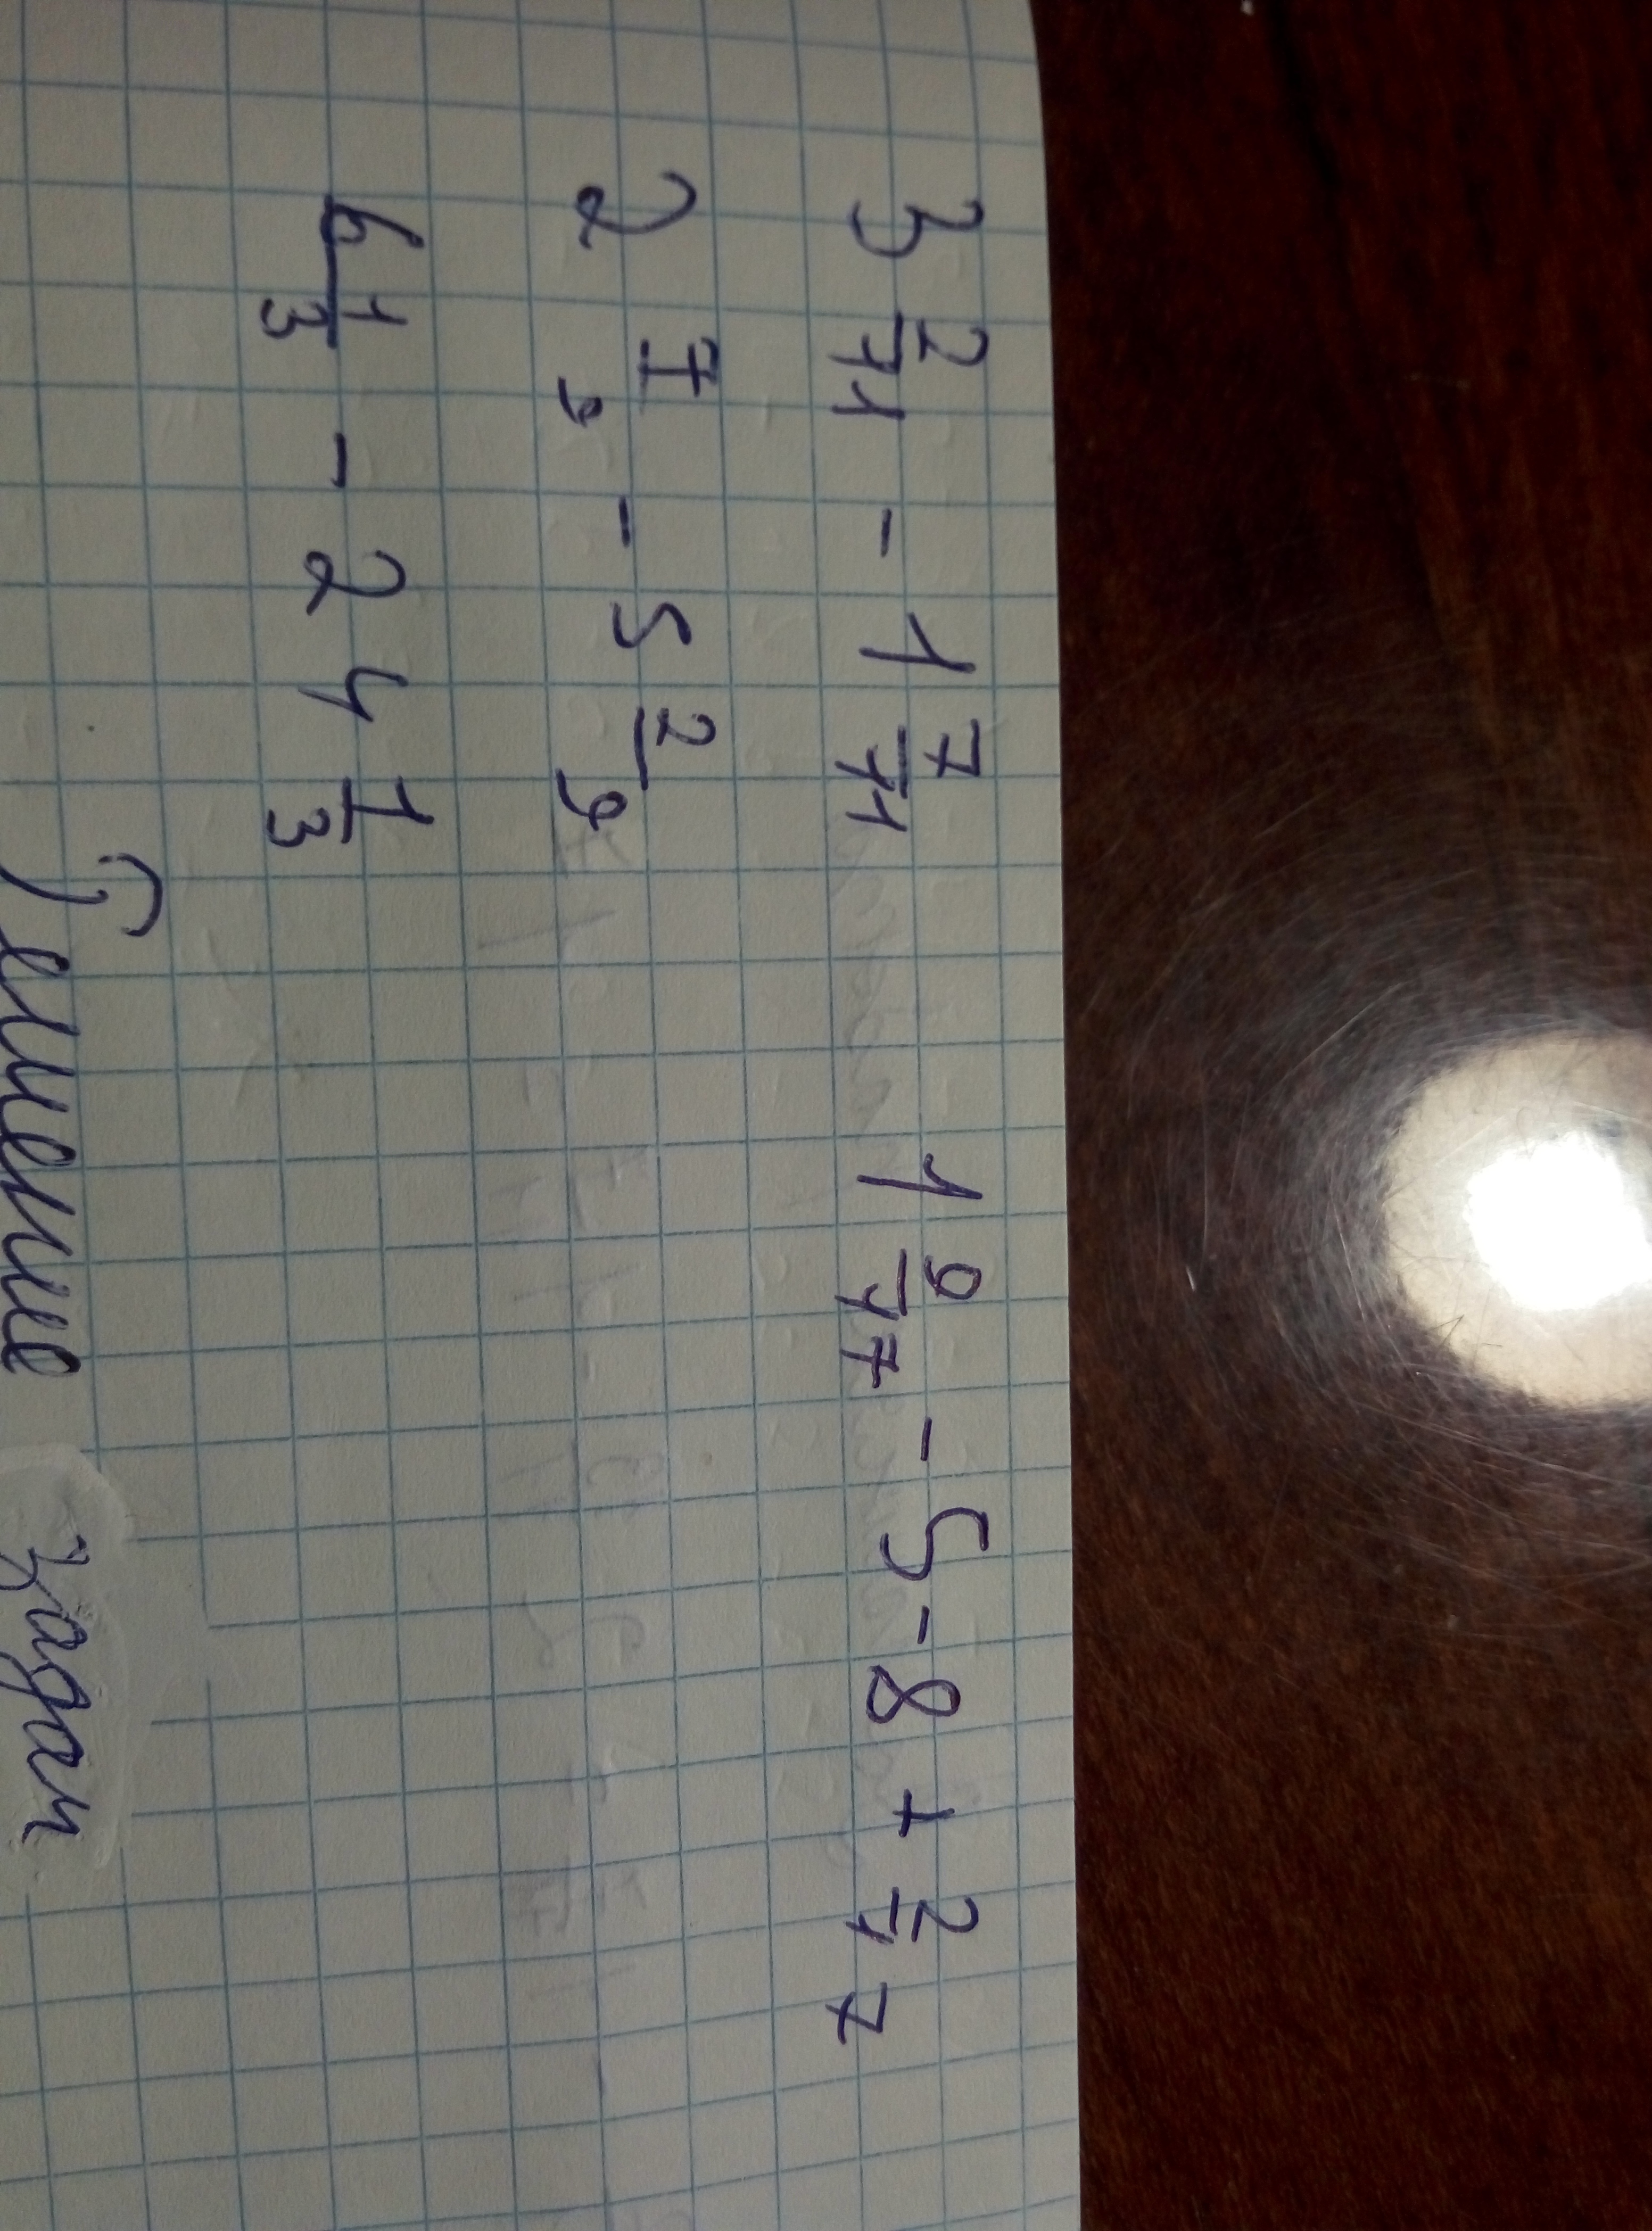 3 2/11 - 1 7/11 1 9/17 - 5 - 8 + 2/17
2 7/9 - 5 2/9
6 1/3 - 2 4 1/3
Решение задач